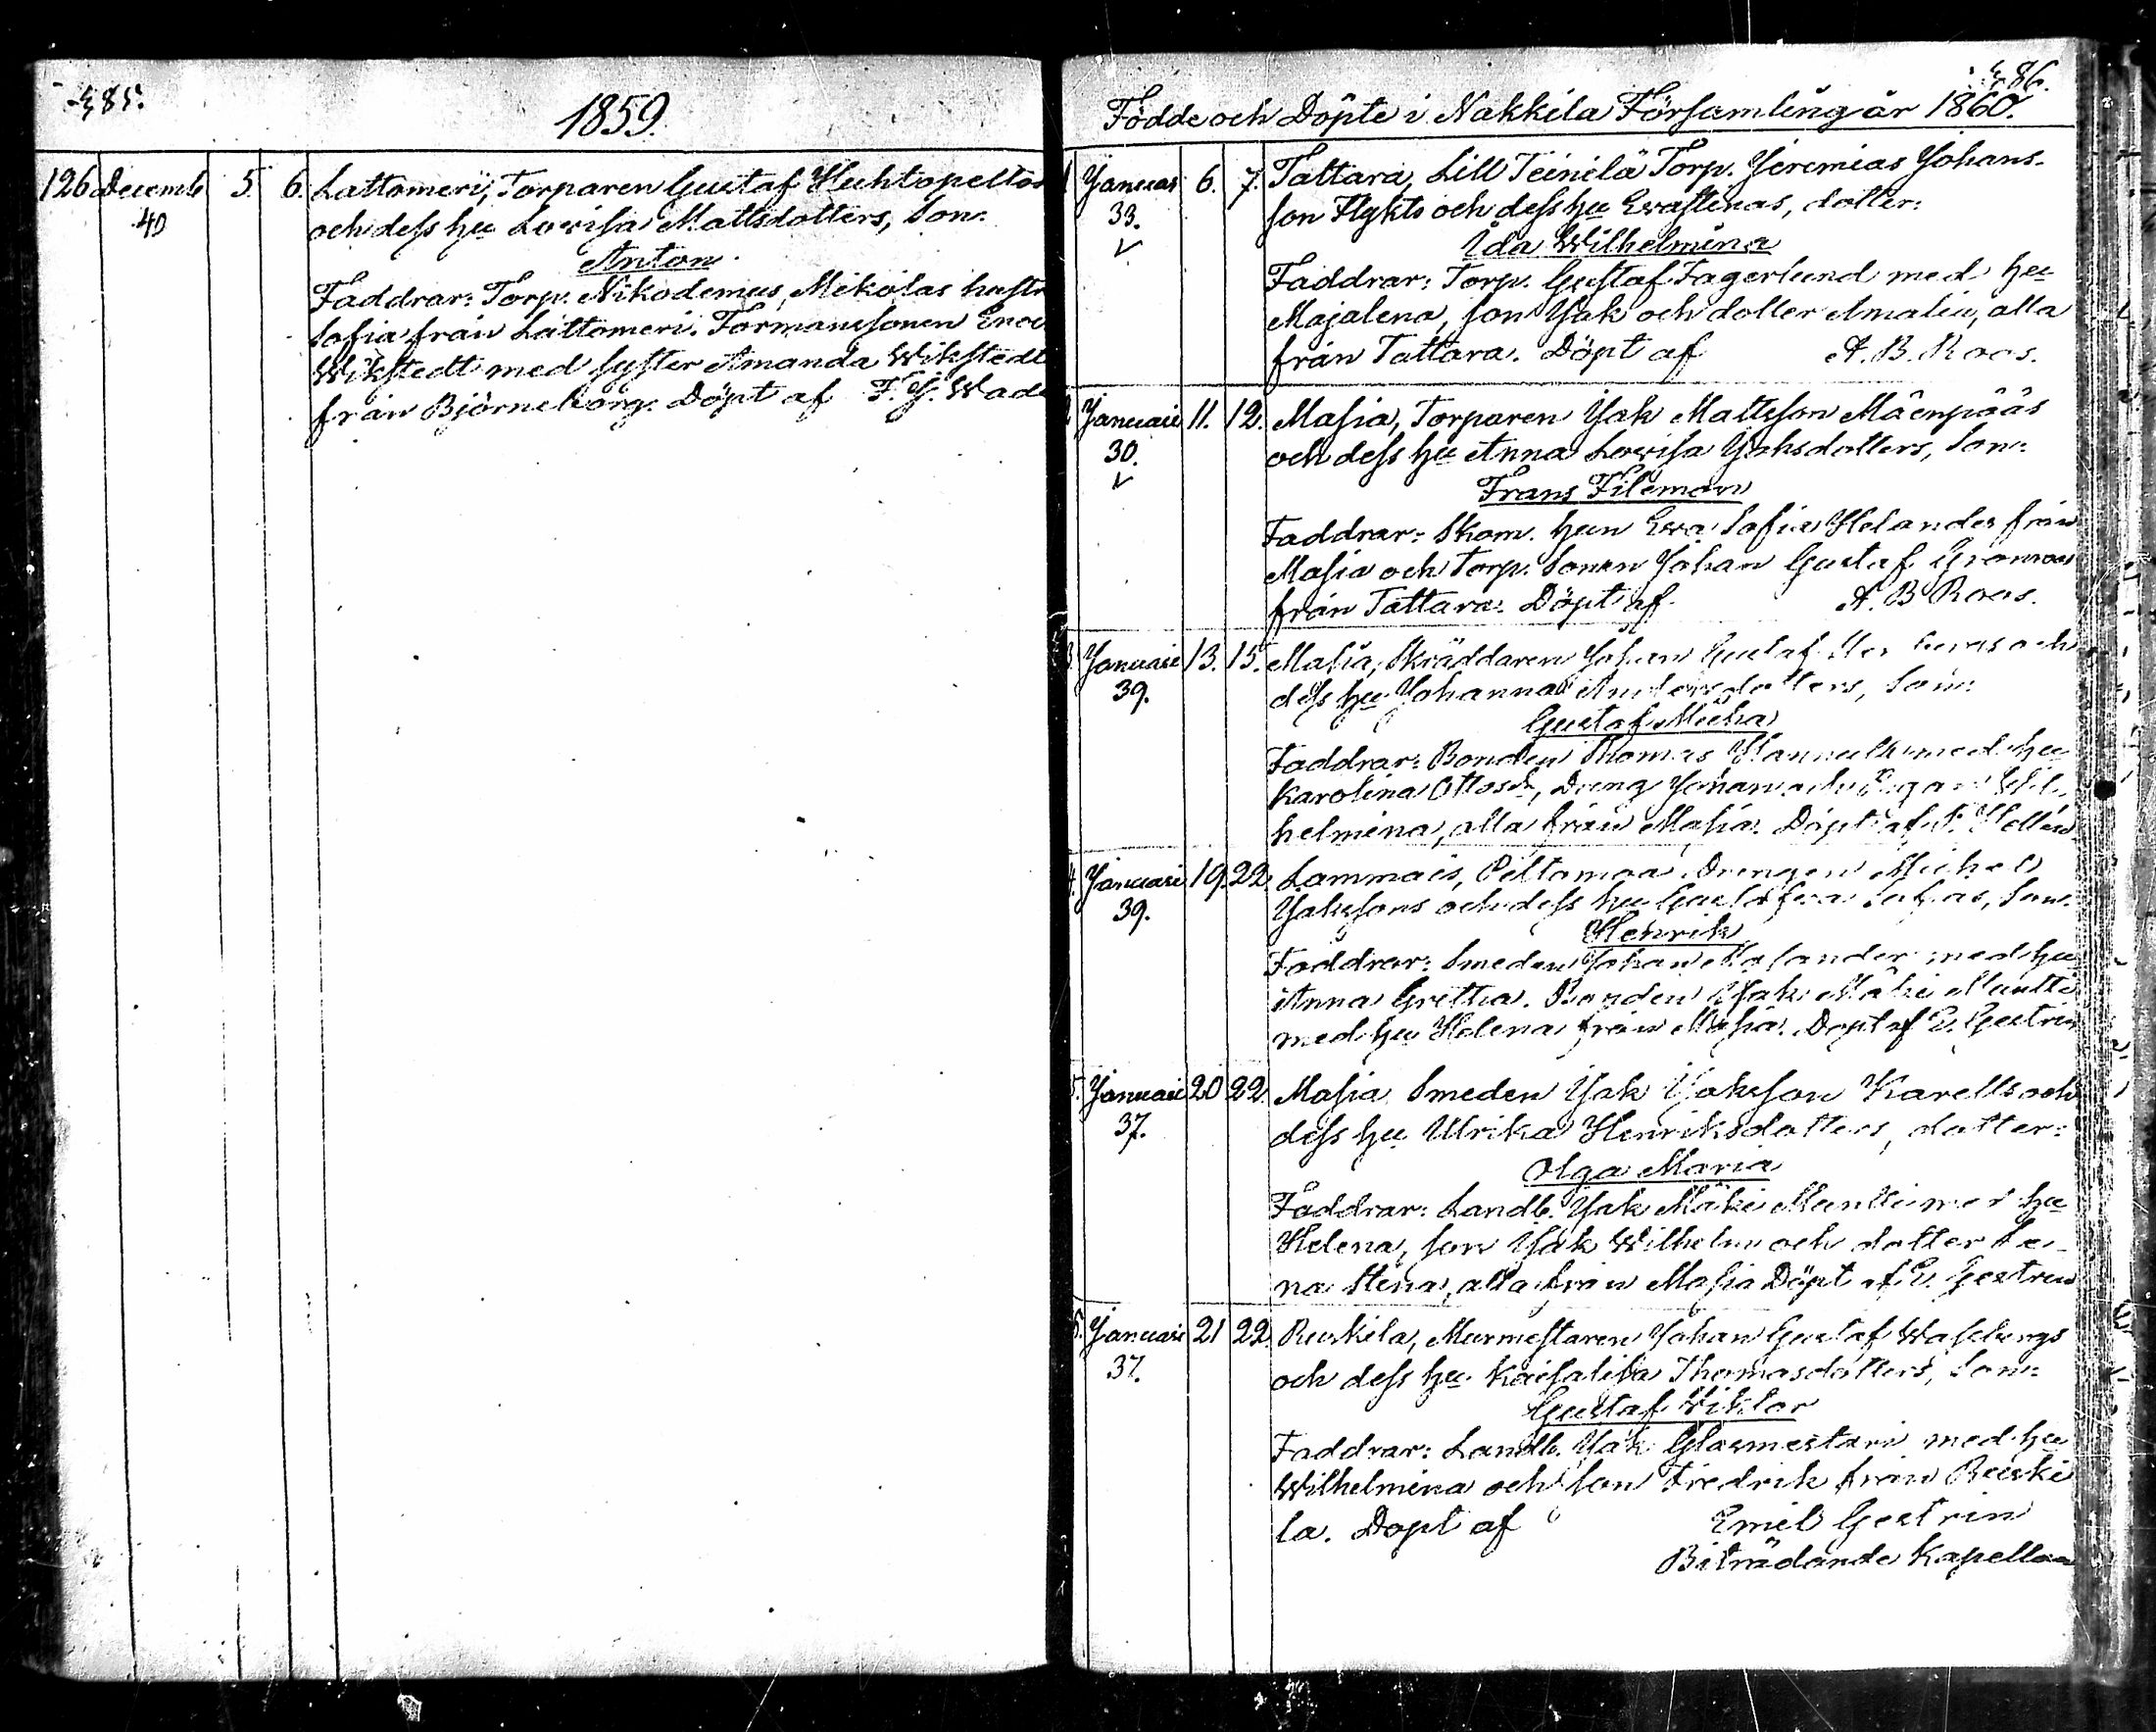 485.
1859.
126 Decemb 5. 6. Lattomeri, Torparen Gustaf Huhtapeltos
40 och dess hu Lovisa Mattsdotters, Son:
Anton
Faddrar: Torp. Nikodemus Mikolas hustr
Sofia från Lattomeri. Formanssonen Enoc
Wikstedt med syster Amanda Wikstedt
från Björneborg. Döpt af F. G. Wade
486.
Födde och Döpte i Nakkila Församling år 1860.
1 Januar 6. 7. Tattara, Lill Teinilä Torp. Jeremias Johans-
33. son Flykts och dess hu Evastinas, dotter:
Ida Wilhelmina
Faddrar: Torp. Gustaf Fagerlund med hu
Majalena, son Isak och dotter Amalia, alla
från Tattara. Döpt af A. B. Roos.
2 Januari 11. 12. Masia, Torparen Isak Mattsson Mäenpääs
30. och dess hu Anna Lovisa Isaksdotters, Son:
Frans Fileman
Faddrar: Skom. hun Eva Sofia Helander från
Masia och Torp. Sonen Johan Gustaf Grönroos
från Tattara. Döpt af A. B Roos.
3. Januari 13. 15. Masia, Skräddaren Johan Gustaf och
39. dess hu Johanna Andersdotters, Son:
Gustaf Mika
Faddrar: Bonden Thomas Hannula med hu
Karolina Ottosdr, Dreng Johan och Pigan Wil-
helmina, alla från Masia. Döpt af
4. Januari 19. 22 Lammais, Peltomaa Drengen Michel
39. Isakssons och dess hu Gustafva Sofias, Son:
Henrik
Faddrar: Smeden Johan med hu
Anna Gretha. Bonden Isak Mäki Mantti
med hu Helena från Masia. Döpt af E. Gestrin
5. Januari 20 22. Masia Smeden Isak Isaksson Karells och
37. dess hu Ulrika Henriksdotters, dotter:
Olga Maria
Faddrar: Landb. Isak Mäki Mantti med hu
Helena, son Isak Wilhelm och dotter Le-
na Stina, alla från Masia Döpt af E. Gestrin
6. Januari 21 22. Ruskila, Murmestaren Johan Gustaf Wasbergs
37. och dess hu Kaisalisa Thomasdotters, Son:
Gustaf Viktor
Faddrar: Landb. Isak Glasmestari med hu
Wilhelmina och son Fredrik från Ruski
la. Döpt af Emil Gestrin
Biträdande Kapellan